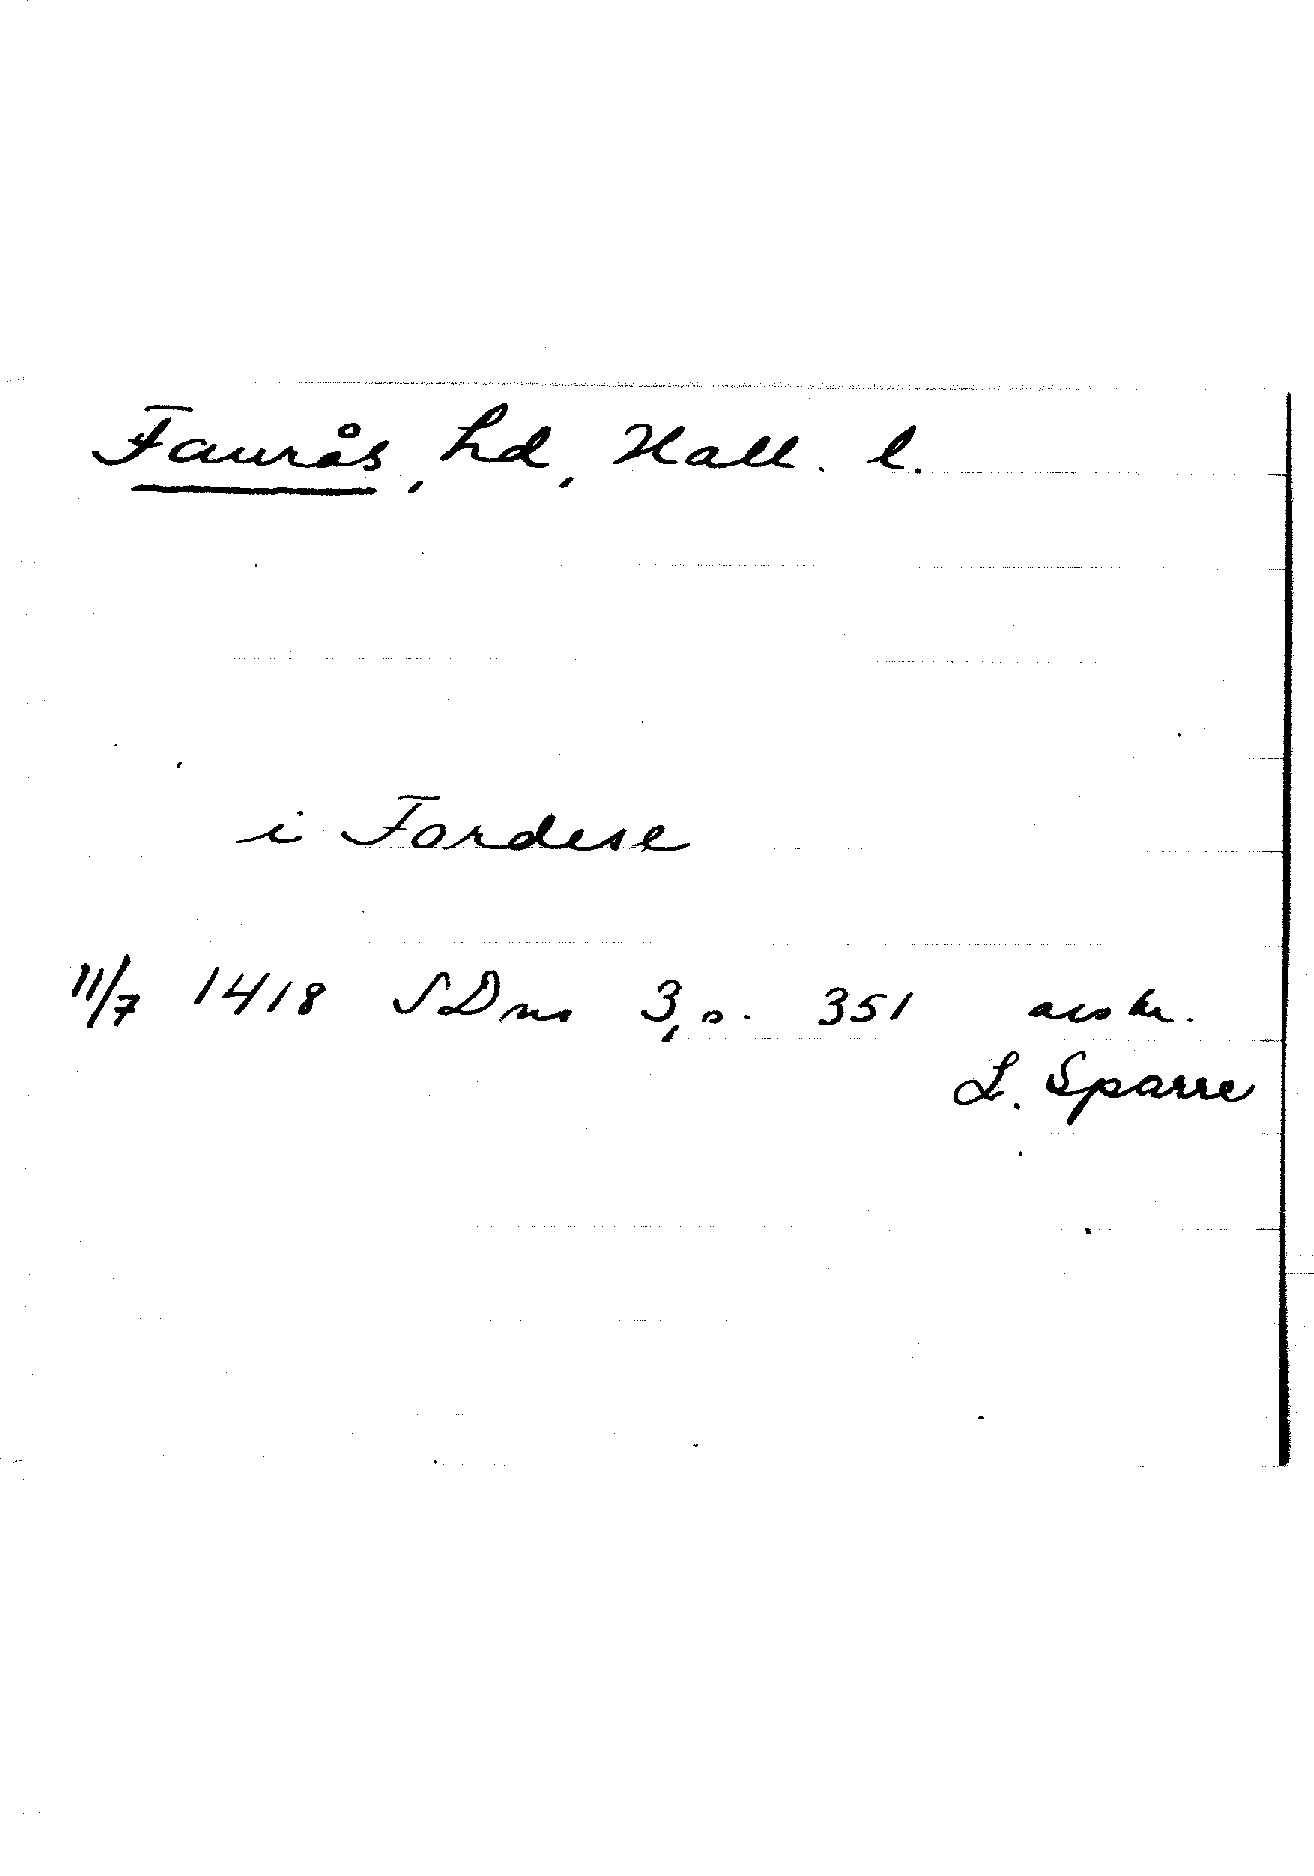 Faurås, hd, Hall. l.
i Fordese
11/7 1418 SDns 3, s. 351 avskr.
L. Sparre